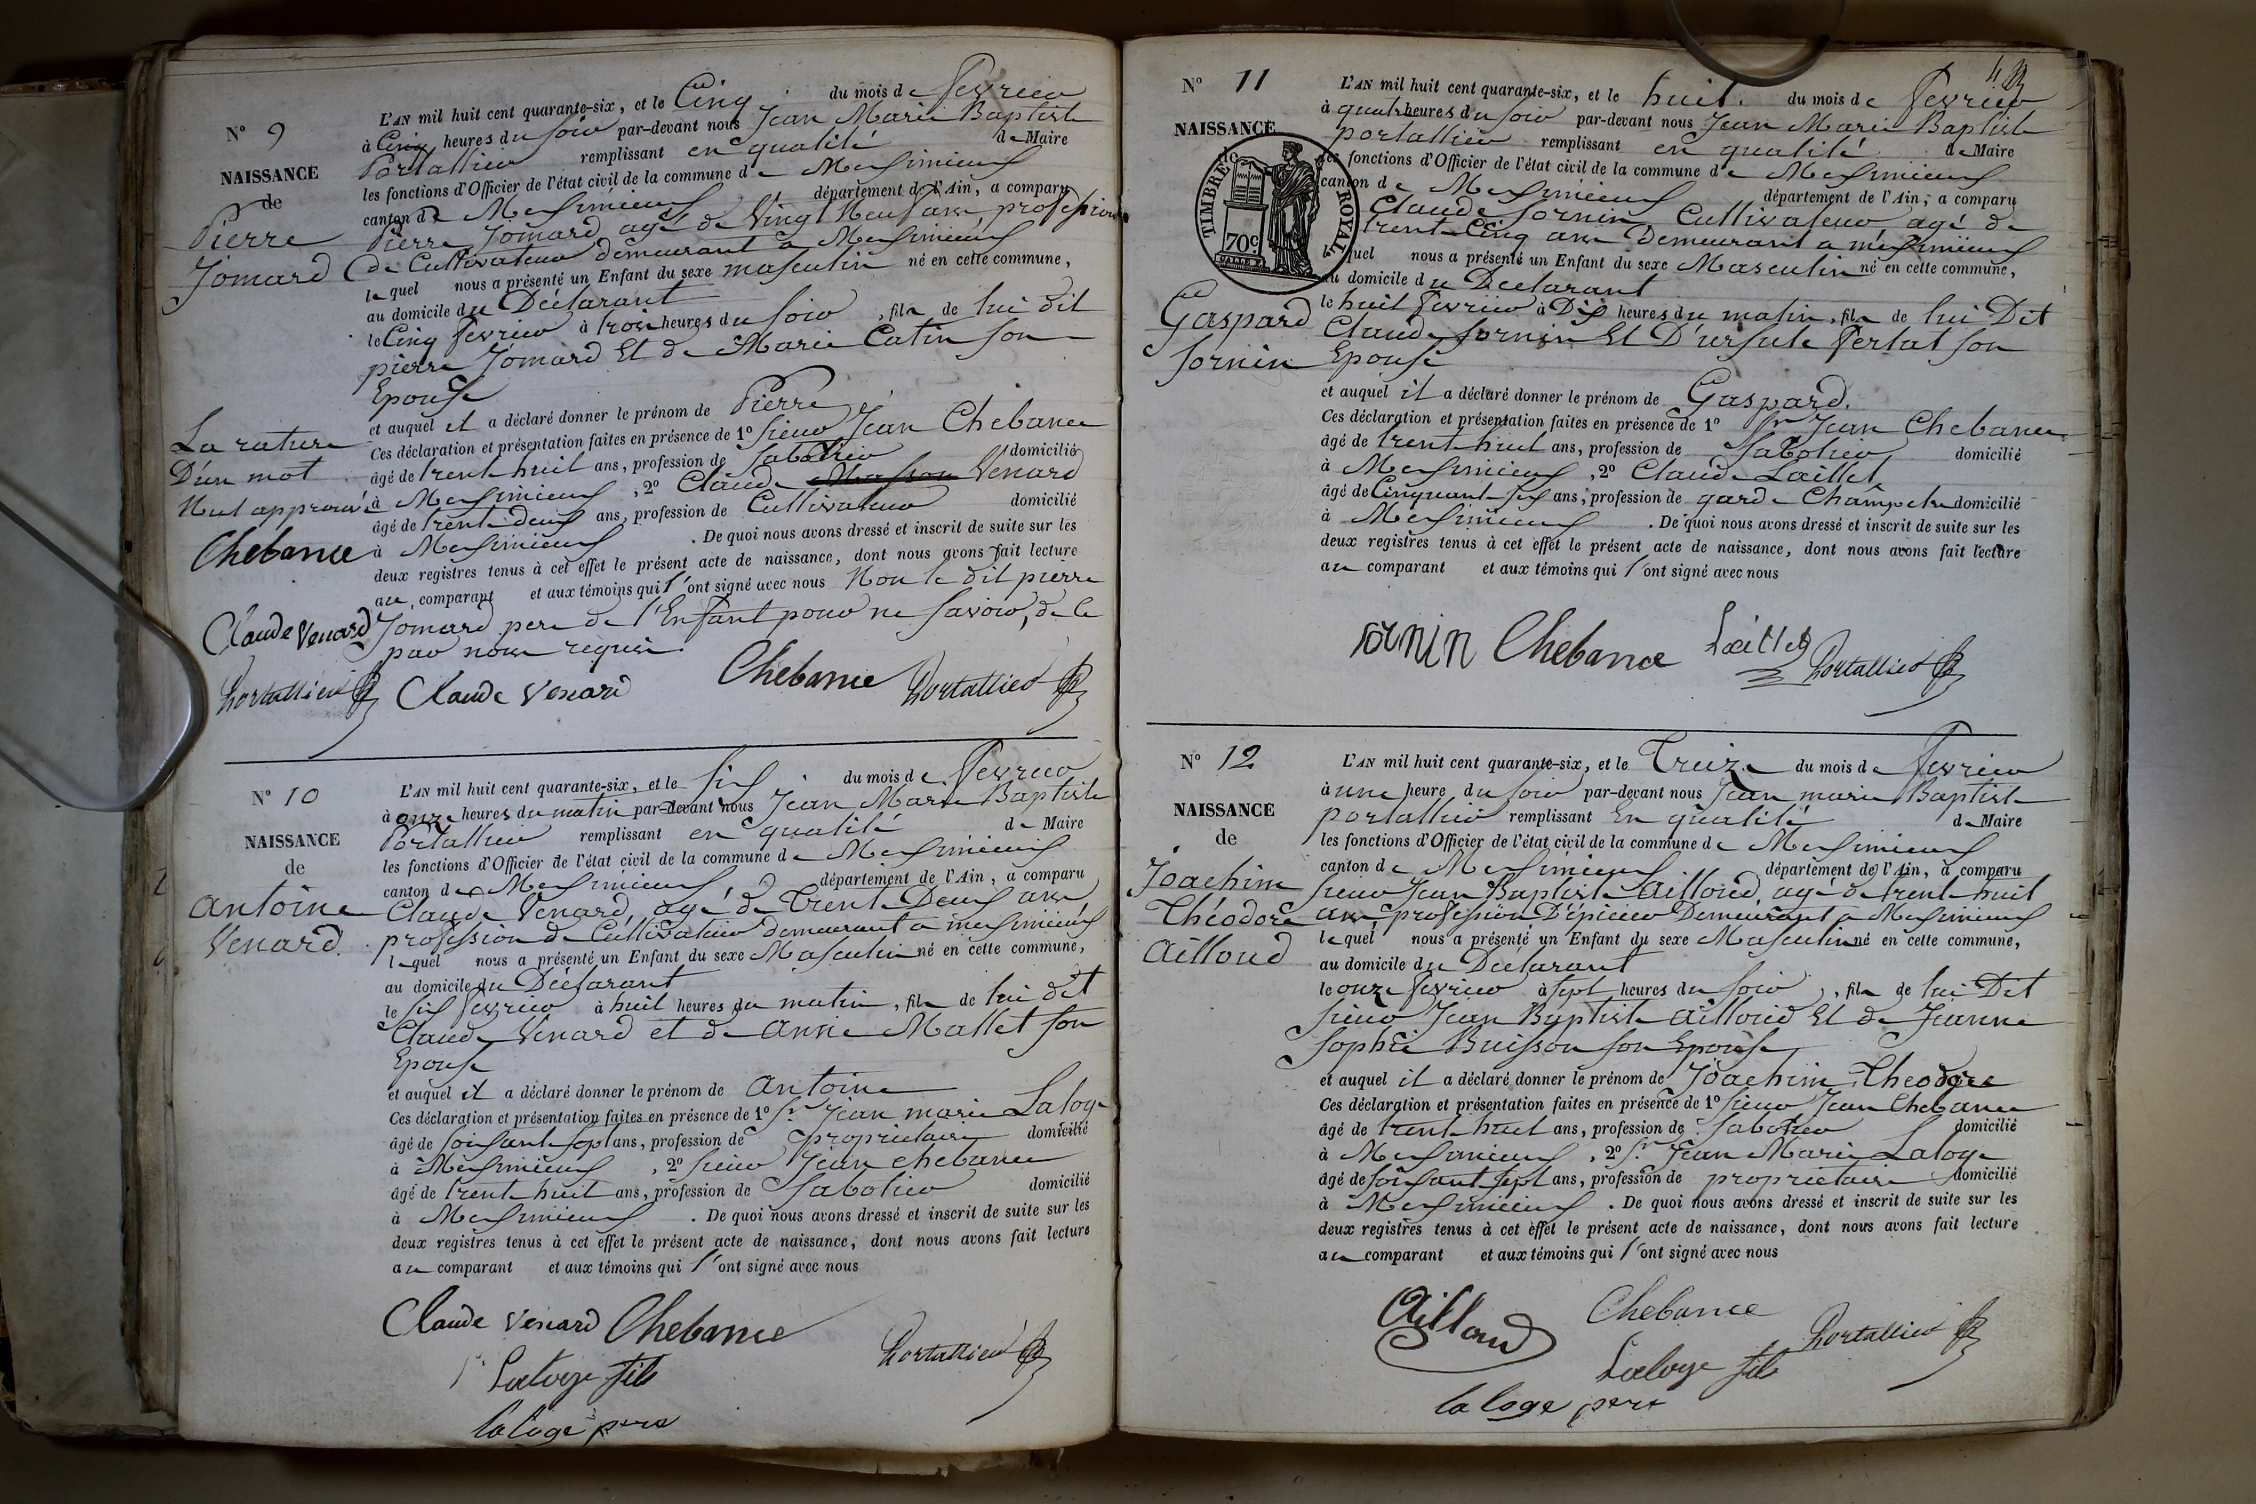 N° 9
NAISSANCE
de
Pierre
Jomard
L'AN mil huit cent quarante-six, et le Cinq du mois de fevrier
à Cinq heures du soir par-devant nous Jean Marie Baptiste
Portallier remplissant en qualité de Maire
les fonctions d'Officier de l'état civil de la commune de Messimieux
canton de Messimieux département de l'Ain, a comparu
Pierre Jomard agé de Vingt Neuf ans, profession
de Cultivateur demeurant a Messimieux
lequel nous a présenté un Enfant du sexe masculin né en cette commune,
au domicile du Déclarant
le Cinq fevrier à trois heures du soir, fils de lui dit
pierre Jomard Et de Marie Catin son
Epouse
et auquel il a déclaré donner le prénom de Pierre
Ces déclaration et présentation faites en présence de 1° sieur Jean Chebance
âgé de trente huit ans, profession de Sabotier domicilié
à Messimieux, 2° Claude Masson Venard
âgé de trente deux ans, profession de Cultivateur domicilié
à Messimieux. De quoi nous avons dressé et inscrit de suite sur les
deux registres tenus à cet effet le présent acte de naissance, dont nous avons fait lecture
au comparant et aux témoins qui l'ont signé avec nous Non le dit pierre
Jomard pere de l'Enfant pour ne savoir, de ce
par nous requis
La rature
D'un mot
Nul approuvé
Chebance
Claude Venard
Portallier
Claude Venard
Chebance
Portallier
N° 10
NAISSANCE
de
Antoine
Venard
L'AN mil huit cent quarante-six, et le six du mois de fevrier
à onze heures du matin par-devant nous Jean Marie Baptiste
Portallier remplissant en qualité de Maire
les fonctions d'Officier de l'état civil de la commune de Messimieux
canton de Messimieux département de l'Ain, a comparu
Claude Venard, agé de Trente Deux ans
profession de Cultivateur demeurant a messimieux
lequel nous a présenté un Enfant du sexe Masculin né en cette commune,
au domicile du Déclarant
le six fevrier à huit heures du matin, fils de lui dit
Claude Venard et de Anne Mallet son
Epouse
et auquel il a déclaré donner le prénom de Antoine
Ces déclaration et présentation faites en présence de 1° Sr Jean marie Laloge
âgé de soixante sept ans, profession de propriétaire domicilié
à Messimieux, 2° sieur Jean chebance
âgé de trente huit ans, profession de Sabotier domicilié
à Messimieux. De quoi nous avons dressé et inscrit de suite sur les
deux registres tenus à cet effet le présent acte de naissance, dont nous avons fait lecture
au comparant et aux témoins qui l'ont signé avec nous
Claude Venard Chebance
Portallier
Laloge fils
laloge pere
N° 11
NAISSANCE
de
TIMBRE ROYAL
70c
Gaspard
Sornin
L'AN mil huit cent quarante-six, et le huit du mois de fevrier
à quatre heures du soir par-devant nous Jean Marie Baptiste
portallier remplissant en qualité de Maire
les fonctions d'Officier de l'état civil de la commune de Messimieux
canton de Messimieux département de l'Ain, a comparu
Claude Sornin Cultivateur agé de
trente Cinq ans Demeurant a messimieux
lequel nous a présenté un Enfant du sexe Masculin né en cette commune,
au domicile du Déclarant
le huit fevrier à Dix heures du matin, fils de lui Dit
Claude Sornin Et D'ursule fertat son
Epouse
et auquel il a déclaré donner le prénom de Gaspard.
Ces déclaration et présentation faites en présence de 1° Sr Jean Chebance
âgé de trente huit ans, profession de Sabotier domicilié
à Messimieux, 2° Claude Laillet
âgé de Cinquante six ans, profession de garde Champetre domicilié
à Messimieux. De quoi nous avons dressé et inscrit de suite sur les
deux registres tenus à cet effet le présent acte de naissance, dont nous avons fait lecture
au comparant et aux témoins qui l'ont signé avec nous
Sornin Chebance Laillet
Portallier
N° 12
NAISSANCE
de
Joachim
Théodore
Ailloud
L'AN mil huit cent quarante-six, et le Treize du mois de fevrier
à une heure du soir par-devant nous Jean marie Baptiste
portallier remplissant En qualité de Maire
les fonctions d'Officier de l'état civil de la commune de Messimieux
canton de Messimieux département de l'Ain, a comparu
sieur Jean Baptiste Ailloud, agé de trente huit
ans profession D'épicier Demeurant a Messimieux
lequel nous a présenté un Enfant du sexe Masculin né en cette commune,
au domicile du Déclarant
le onze fevrier à sept heures du soir, fils de lui Dit
sieur Jean Baptiste Ailloud Et de Jeanne
Sophie Buisson son Epouse
et auquel il a déclaré donner le prénom de Joachim Theodore
Ces déclaration et présentation faites en présence de 1° sieur Jean Chebance
âgé de trente huit ans, profession de Sabotier domicilié
à Messimieux, 2° Sr Jean Marie Laloge
âgé de soixante sept ans, profession de propriétaire domicilié
à Messimieux. De quoi nous avons dressé et inscrit de suite sur les
deux registres tenus à cet effet le présent acte de naissance, dont nous avons fait lecture
au comparant et aux témoins qui l'ont signé avec nous
Ailloud
Chebance
Portallier
Laloge fils
la loge pere